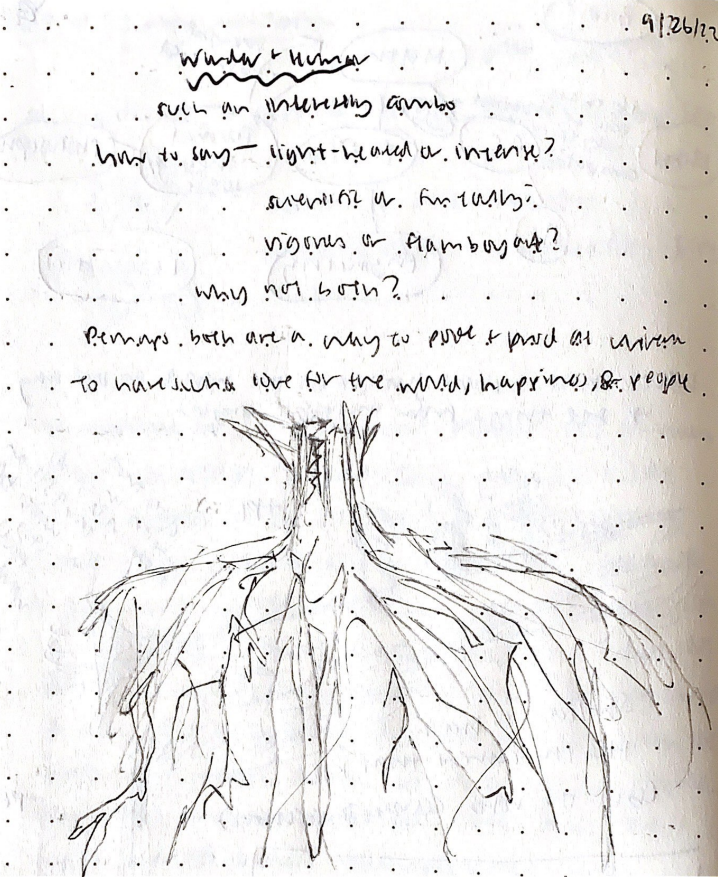 9/26/22
Wonder + Humor
such an interesting combo
how to say – light-hearted or intense?
scientific or fantastly?
vigorous or flamboyant?
why not both?
Perhaps both are a way to poke + prod at universe
to have such a love for the world, happiness, & people